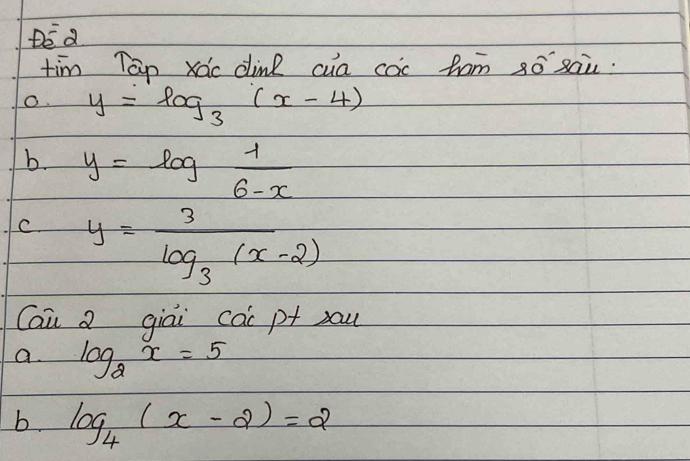 Đề 2
tìm Tập xác định của các hàm số sau:
a. y = log₃ (x - 4)
b. y = log 1/(6-x)
c y = 3/(log₃ (x-2))
Câu 2 giải các pt sau
a. log₂ x = 5
b. log₄ (x - 2) = 2